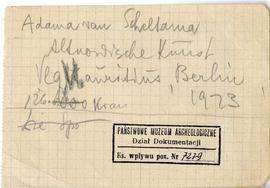 Adama van Scheltama
Altnordische Kunst
Mauritius Berlin
1923
PAŃSTWOWE MUZEUM ARCHEOLOGICZNE
Dział Dokumentacji
Ks. wpływu poz. Nr 7279